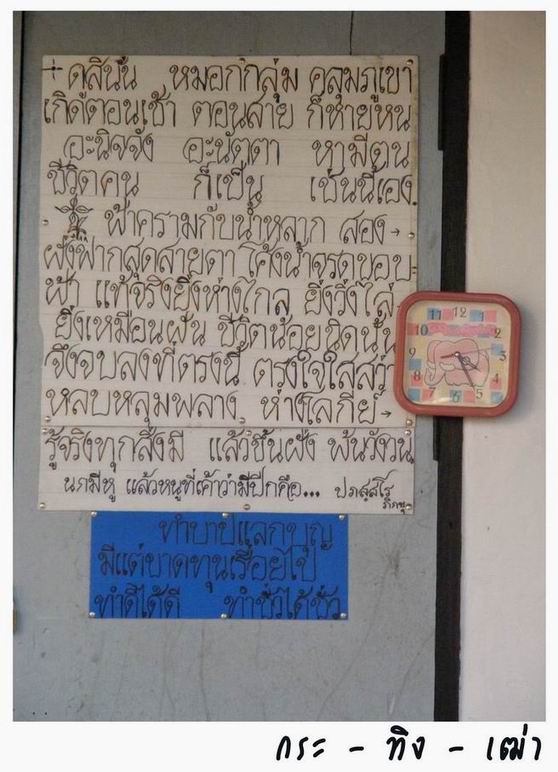 + ดูสินั่น หมอกกลุ่ม คลุมภูเขา
เกิดตอนเช้า ตอนสาย ก็หายหน
อะนิจจัง อะนัตตา หามีตน
ชีวิตคน ก็เป็น เช่นนี้เอง
ฟ้าครามกับน้ำหลาก สอง→
ฝั่งฟากสุดสายตา โค้งน้ำจรดขอบ=
ฟ้า แท้จริงยิ่งห่างไกล ยิ่งวิ่งไล่
ยิ่งเหมือนฝัน ชีวิตน้อยนิดนั้น
จึงจบลงที่ตรงนี้ ตรงใจใส
หลบหลุมพลาง ห่างโลกีย์→
รู้จริงทุกสิ่งมี แล้วขึ้นฝั่ง พ้นวังวน
นกมีหู แล้วหนูที่เค้าว่ามีปีกคือ... ปภสฺสโร
ภิกขุ
ทำบาปแลกบุญ
มีแต่ขาดทุนเรื่อยไป
ทำดีได้ดี ทำชั่วได้ชั่ว
11 12 1
10 2
9 3
8 4
7 6 5
กระ - ทิง - เฒ่า